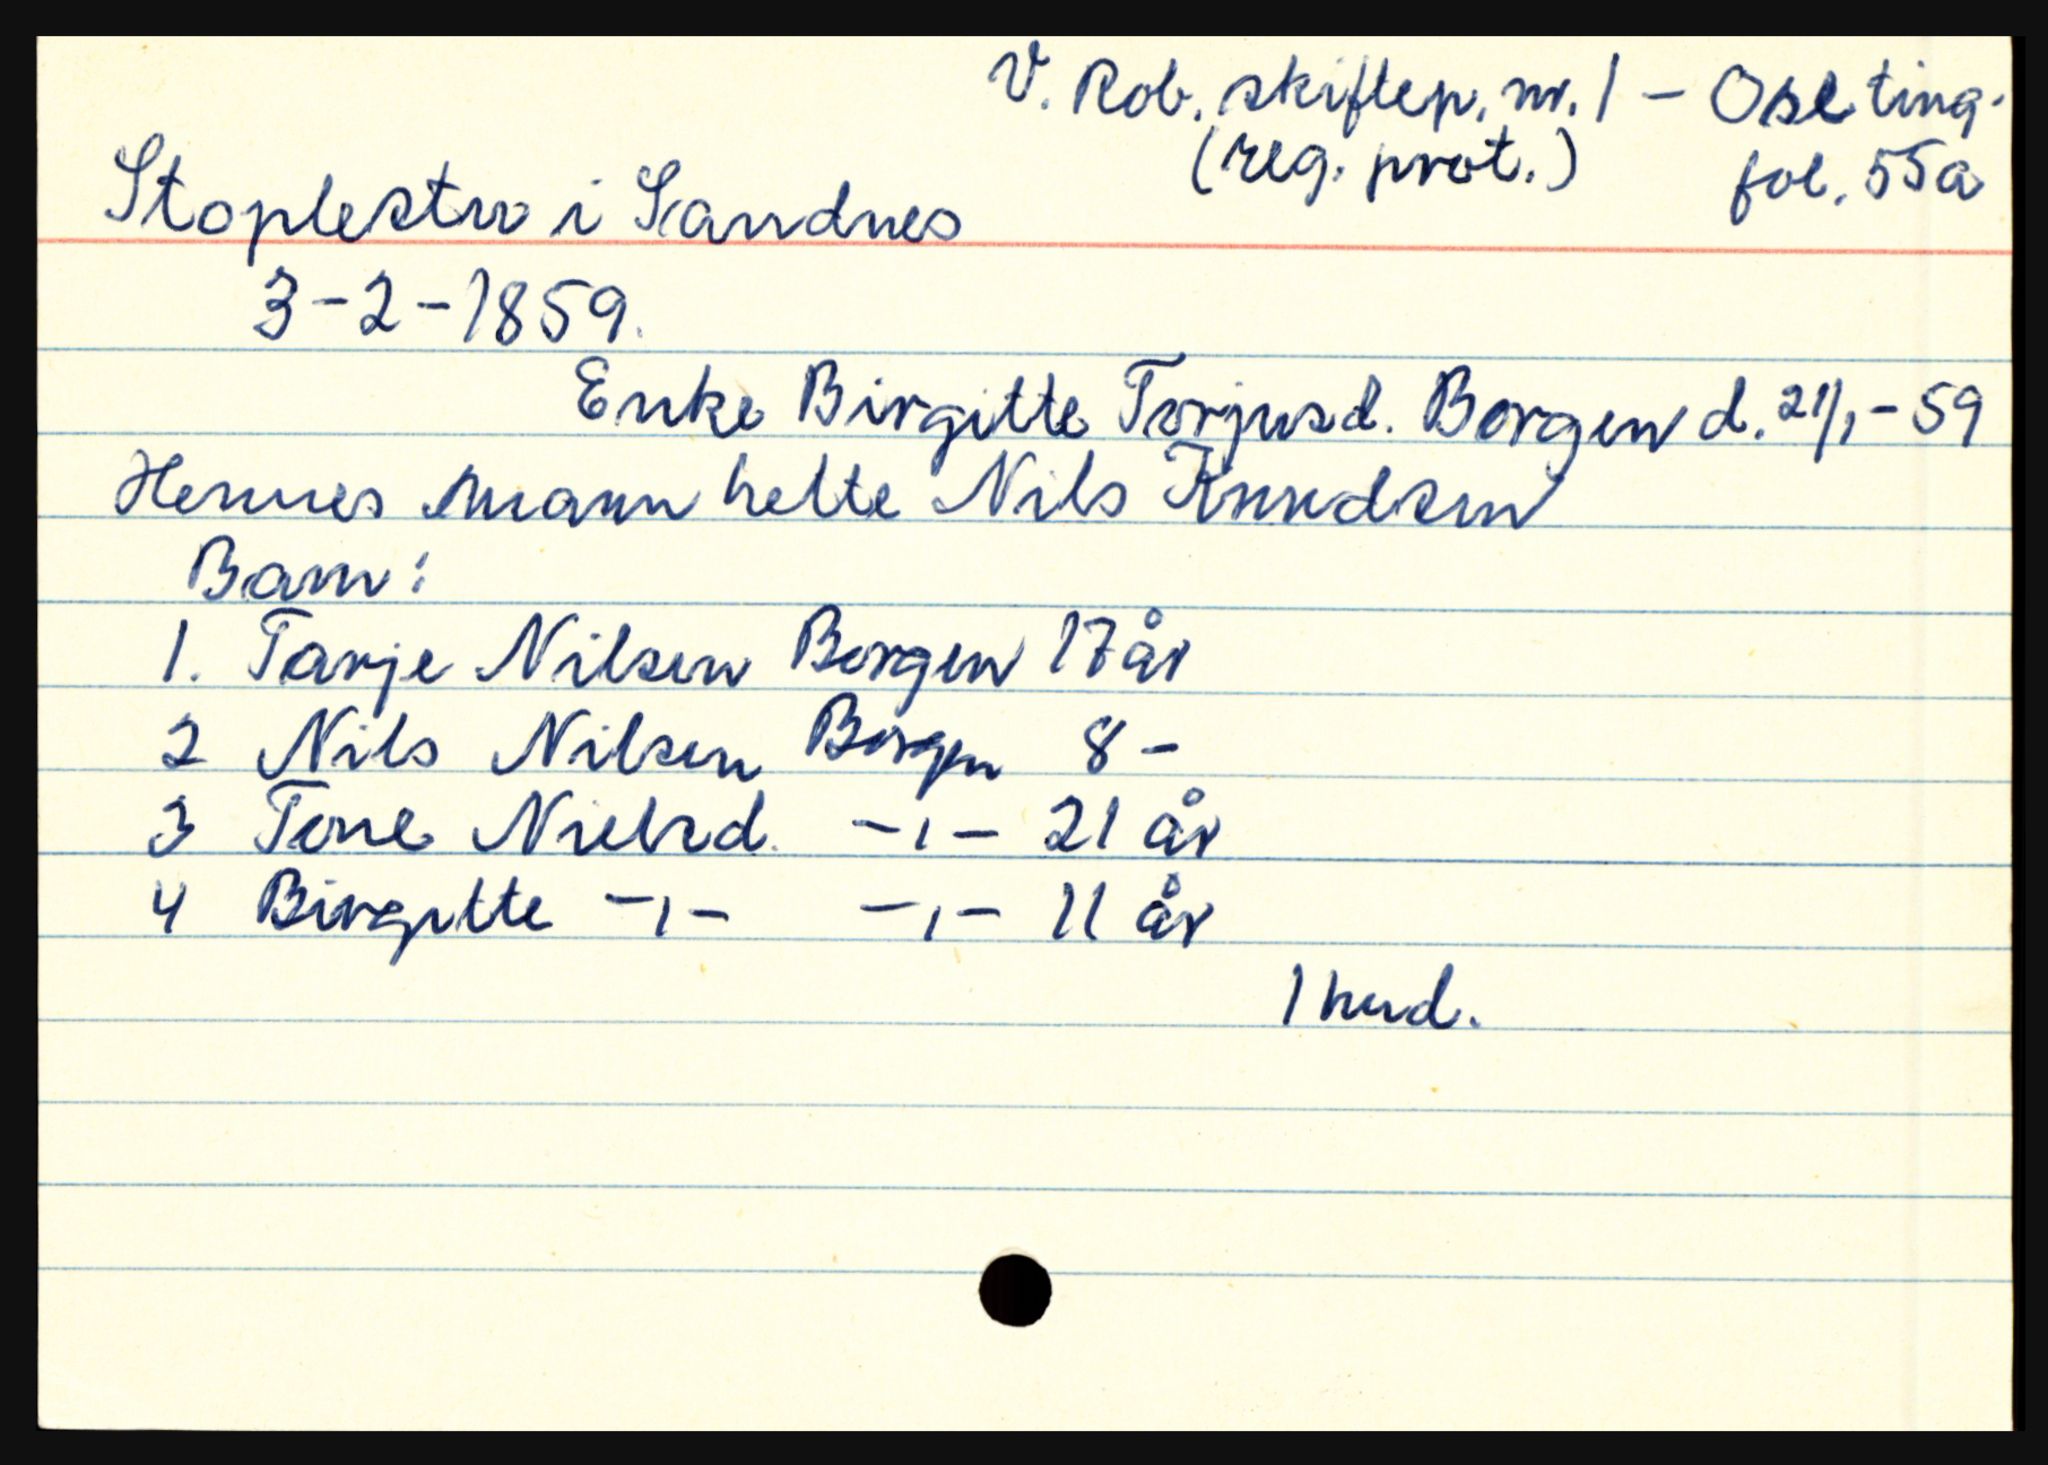 V. Rob. skiftep. nr. 1 - Ose ting.
(reg. prot.) fol. 55a
Stoplestw i Sandnes
3-2-1859.
Enke Birgitte Torjusd. Borgen d. 21/1-59
Hennes mann hette Nils Knudsen
Barn:
1. Tarje Nilsen Borgen 17 år
2 Nils Nilsen Borgen 8 -
3 Tone Nielsd. -,- 21 år
4 Birgitte -,- -,- 11 år
1 hud.